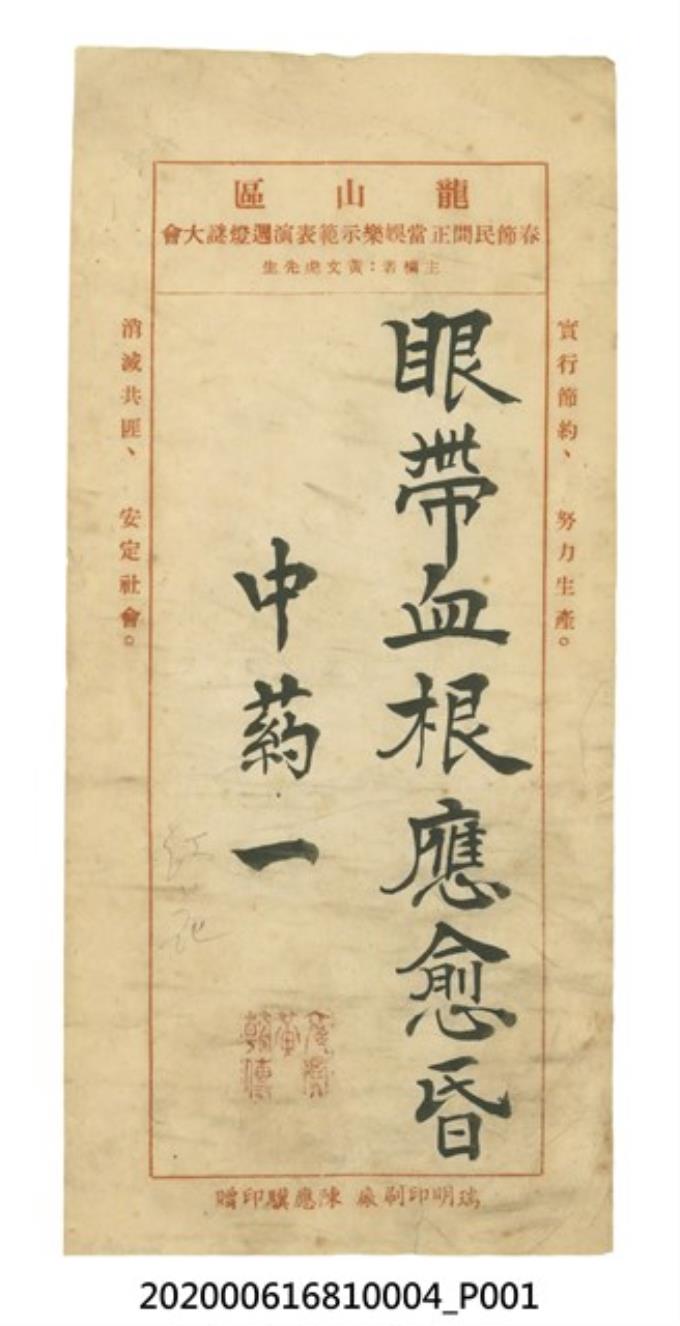 龍山區
春節民間正當娛樂示範表演週燈謎大會
主者：黃文虎先生
實行節約、　努力生產。
眼帶血根應愈昏
中葯一
紅花
消滅共匪、　安定社會。
瑞明印刷廠 陳應驥印贈
202000616810004_P001